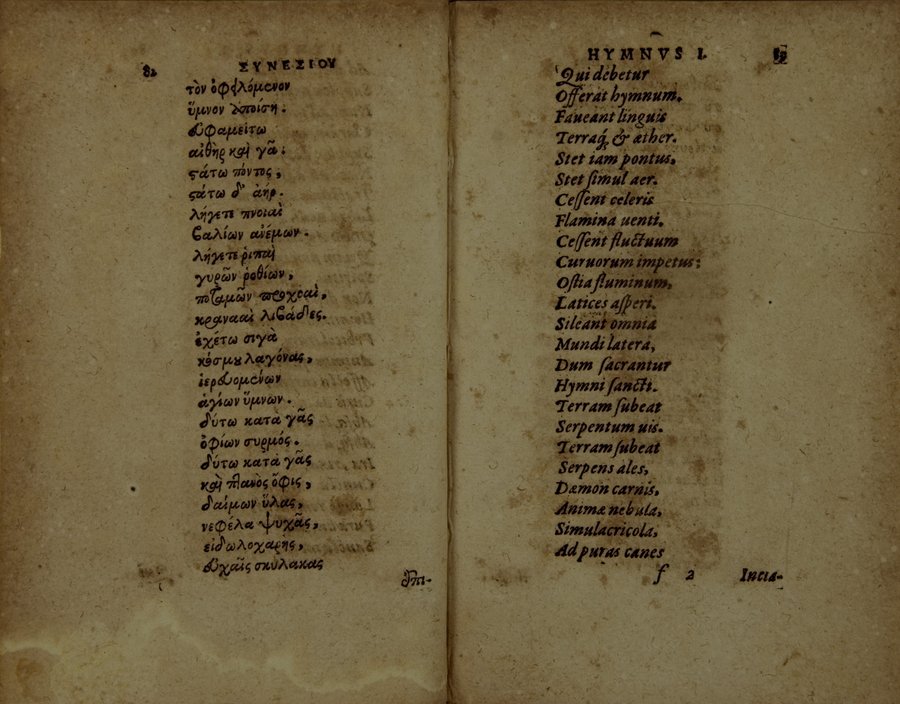 82 ΣΥΝΕΣΙΟΥ
τὸν ὀφειλόμενον
ὕμνον ἀποίση.
εὐφαμείτω
αἰθὴρ καὶ γᾶ.
στάτω πόντος,
στάτω δ' ἀήρ.
λήγετε πνοιαὶ
βαλίων ἀνέμων.
λήγετε ῥιπαὶ
γυρῶν ῥοθίων,
ποταμῶν προχοαὶ,
κρανααὶ λιβάδες.
ἐχέτω σιγὰ
κόσμου λαγόνας,
ἱερευομένων
ἁγίων ὕμνων.
δύτω κατὰ γᾶς
ὀφίων συρμός.
δύτω κατὰ γᾶς
καὶ πτανὸς ὄφις,
δαίμων ὕλας,
νεφέλα ψυχᾶς,
εἰδωλοχαρὴς,
εὐχαῖς σκύλακας
ἐπι-
HYMNVS I.
Qui debetur
Offerat hymnum.
Faueant linguis
Terraq́; & æther.
Stet iam pontus,
Stet ſimul aer.
Ceſſent celeris
Flamina uenti.
Ceſſent fluctuum
Curuorum impetus:
Oſtia fluminum,
Latices aſperi.
Sileant omnia
Mundi latera,
Dum ſacrantur
Hymni ſancti.
Terram ſubeat
Serpentum uis.
Terram ſubeat
Serpens ales,
Dæmon carnis,
Animæ nebula,
Simulacricola,
Ad puras canes
f 2 Incia-